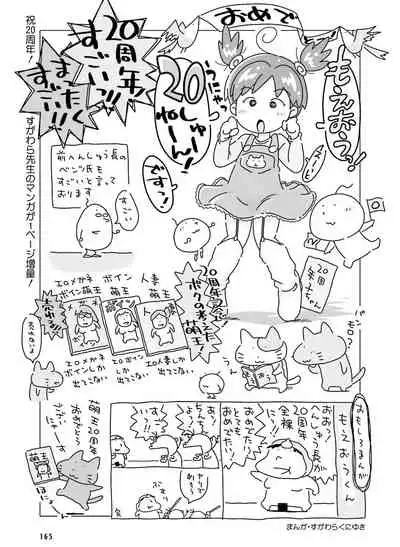 祝20周年！
すがわら先生のマンガが1ページ増量！
20周年！
すごいっ!!
まったく
すごい!!
おめで
もえおうっ！
20
しゅー
ねーん！
ですっ！
前へんしゅう長の
ベンジ氏も
すごいと言って
おります
すごい
20周年ってことで
ボクの考えた
萌王！
人妻
萌王
ボイン
萌王
エロメガネ
ボイン萌王
エロ人妻しか
出てこない
ボインしか
出てこない
エロメガネ
ボインしか
出てこない
売れないよ
うん
おもしろまんが
もえおうくん
20周年
へんしゅう長が
全裸に！
おめでたい！
とても
おめでたい！
萌王20周年
おめでとう
ございまーす
まんが・すがわらくにゆき
165